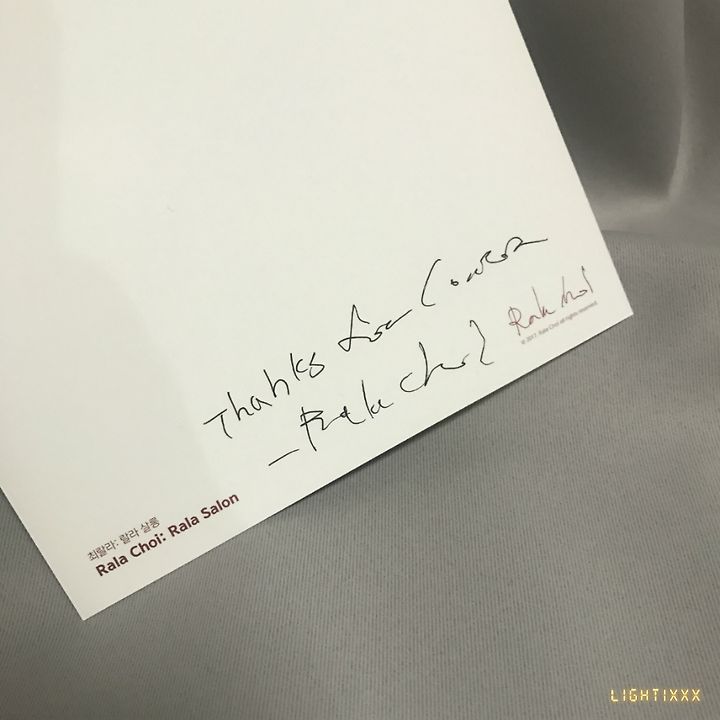 Thanks for Comin
- Rala Choi
Rala Choi
© 2017. Rala Choi all rights reserved.
최랄라: 랄라 살롱
Rala Choi: Rala Salon
LIGHTIXXX